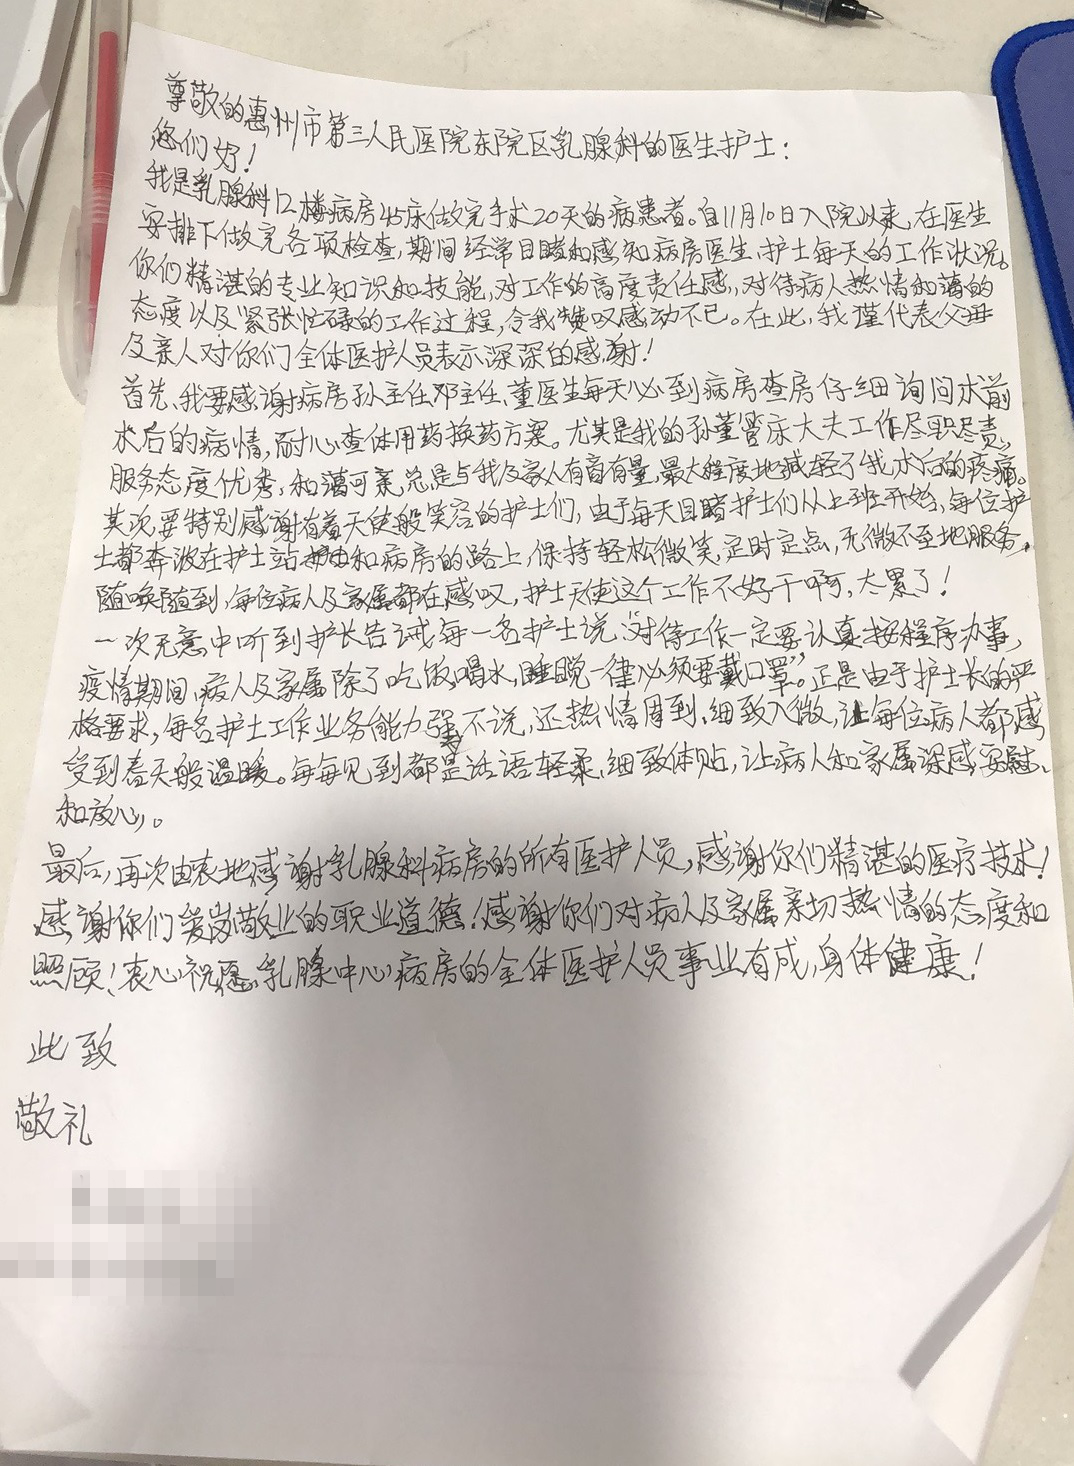 尊敬的惠州市第三人民医院东院区乳腺科的医生护士:
您们好!
我是乳腺科12楼病房45床做完手术20天的病患者。自11月10日入院以来,在医生
安排下做完各项检查,期间经常目睹和感知病房医生、护士每天的工作状况。
你们精湛的专业知识和技能,对工作的高度责任感,对待病人热情和蔼的
态度以及紧张忙碌的工作过程,令我赞叹感动不已。在此,我谨代表父母
及亲人对你们全体医护人员表示深深的感谢!
首先、我要感谢病房孙主任、邓主任、董医生每天必到病房查房仔细询问术前
术后的病情,耐心查体用药换药方案。尤其是我的孙董管床大夫工作尽职尽责,
服务态度优秀,和蔼可亲,总是与我及家人有商有量,最大程度地减轻了我术后的疼痛。
其次,要特别感谢有着天使般笑容的护士们,由于每天目睹护士们从上班开始,每位护
士都奔波在护士站和病房的路上,保持轻松微笑,定时定点,无微不至地服务,
随唤随到,每位病人及家属都在感叹,护士天使这个工作不好干啊,太累了!
一次无意中听到护长告诫每一名护士说“对待工作一定要认真按程序办事,
疫情期间,病人及家属除了吃饭、喝水,睡觉一律必须要戴口罩”。正是由于护士长的严
格要求,每名护士工作业务能力强不说,还热情周到、细致入微,让每位病人都感
受到春天般温暖。每每见到都是话语轻柔,细致体贴,让病人和家属深感安慰
和放心。
最后,再次由衷地感谢乳腺科病房的所有医护人员,感谢你们精湛的医疗技术!
感谢你们爱岗敬业的职业道德!感谢你们对病人及家属亲切热情的态度和
照顾!衷心祝愿乳腺中心病房的全体医护人员事业有成,身体健康!
此致
敬礼